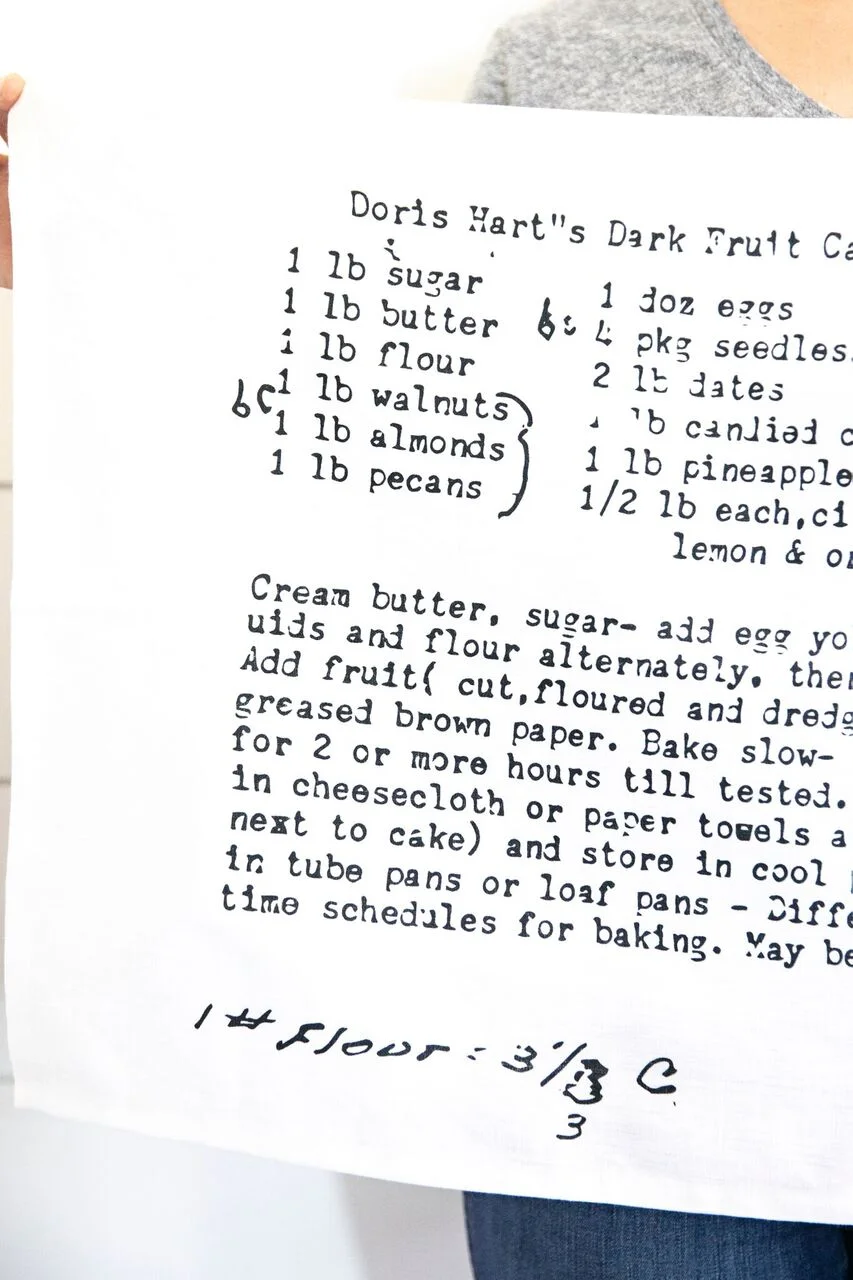 Doris Hart"s Dark Fruit Ca
1 lb sugar
1 lb butter
1 lb flour
6C 1 lb walnuts
1 lb almonds
1 lb pecans
1 doz eggs
pkg seedless
2 lb dates
lb candied c
1 lb pineapple
1/2 lb each,ci
lemon & or
Cream butter, sugar- add egg yo
uids and flour alternately, then
Add fruit( cut,floured and dredg
greased brown paper. Bake slow-
for 2 or more hours till tested.
in cheesecloth or paper towels a
next to cake) and store in cool
in tube pans or loaf pans - Diffe
time schedules for baking. May be
1 # Flour = 3 1/3 C
3